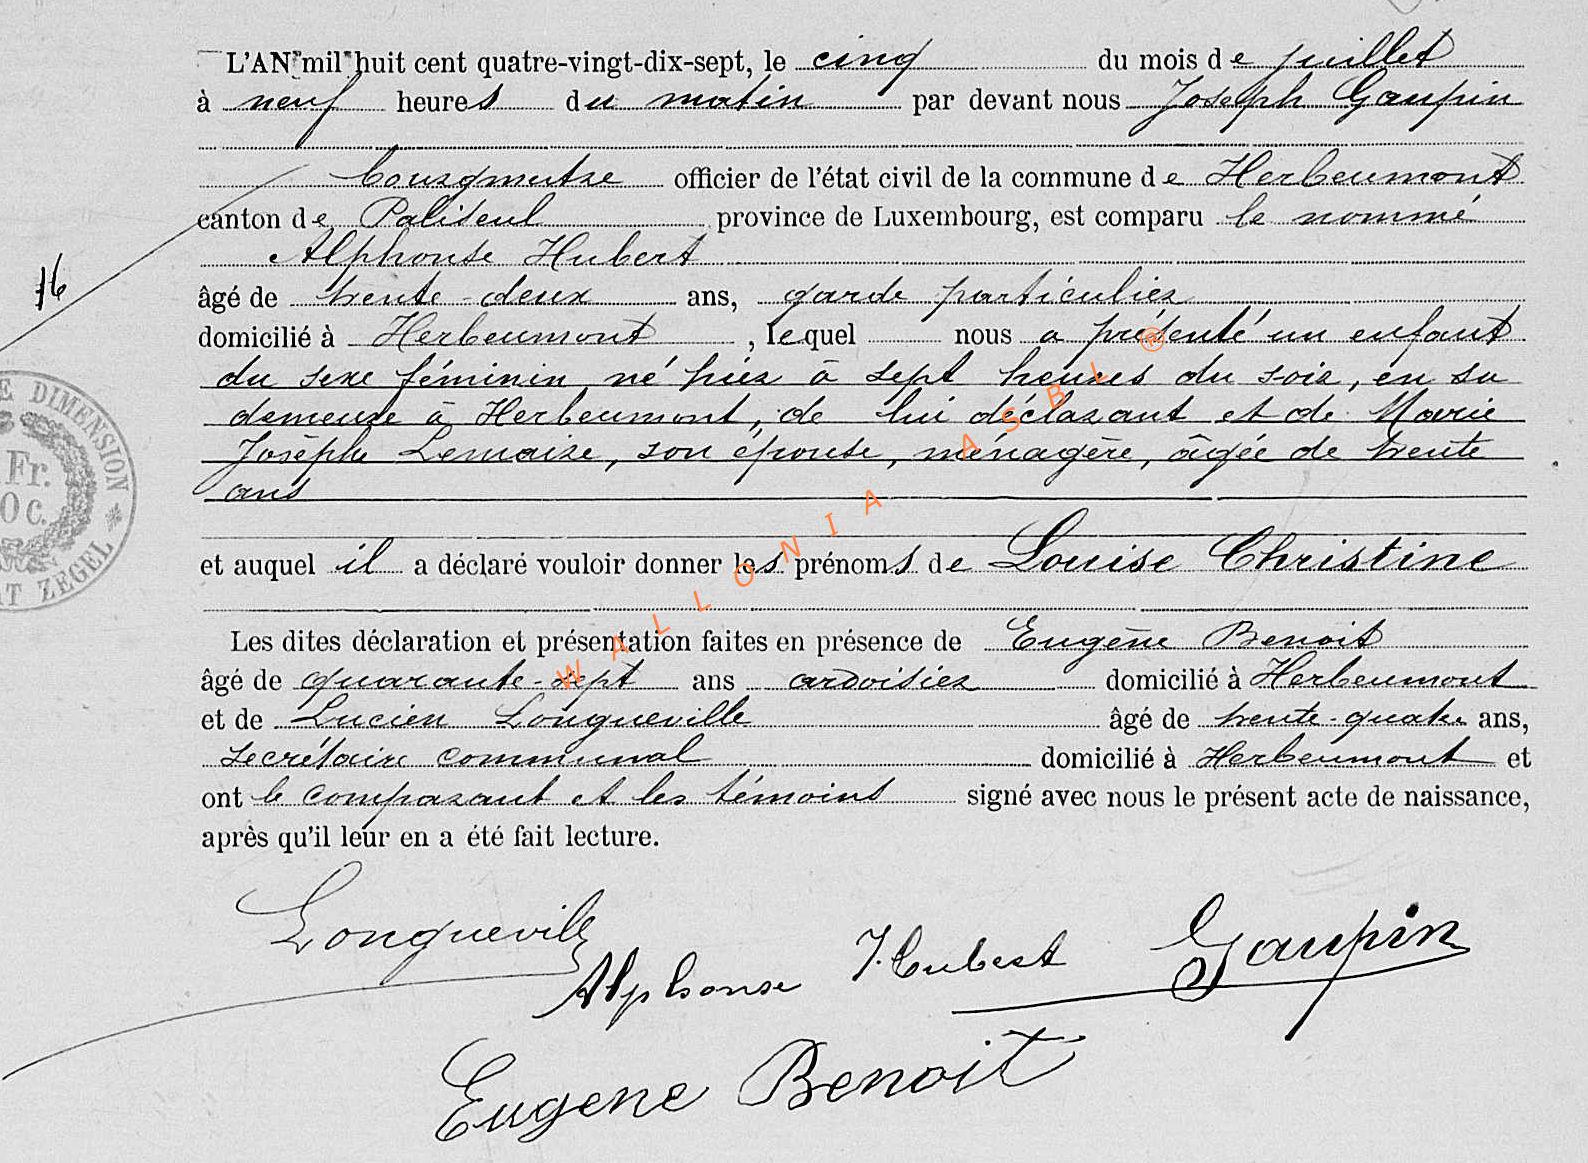 L'AN mil huit cent quatre-vingt-dix-sept, le cinq du mois de juillet
à neuf heures du matin par devant nous Joseph Gaupin
Bourgmestre officier de l'état civil de la commune de Herbeumont
canton de Paliseul province de Luxembourg, est comparu le nommé
Alphonse Hubert
16
âgé de trente-deux ans, garde particulier
domicilié à Herbeumont, lequel nous a présenté un enfant
du sexe féminin, né hier à sept heures du soir, en sa
demeure à Herbeumont, de lui déclarant et de Marie
Josèphe Lemaire, son épouse, ménagère, âgée de trente
ans
et auquel il a déclaré vouloir donner les prénoms de Louise Christine
Les dites déclaration et présentation faites en présence de Eugène Benoit
âgé de quarante-sept ans ardoisier domicilié à Herbeumont
et de Lucien Longueville âgé de trente-quatre ans,
secrétaire communal domicilié à Herbeumont et
ont le comparant et les témoins signé avec nous le présent acte de naissance,
après qu'il leur en a été fait lecture.
Longueville
Alphonse Hubert Gaupin
Eugene Benoit
E DIMENSION
Fr.
0 C.
AT ZEGEL
WALLONIA ASBL ®